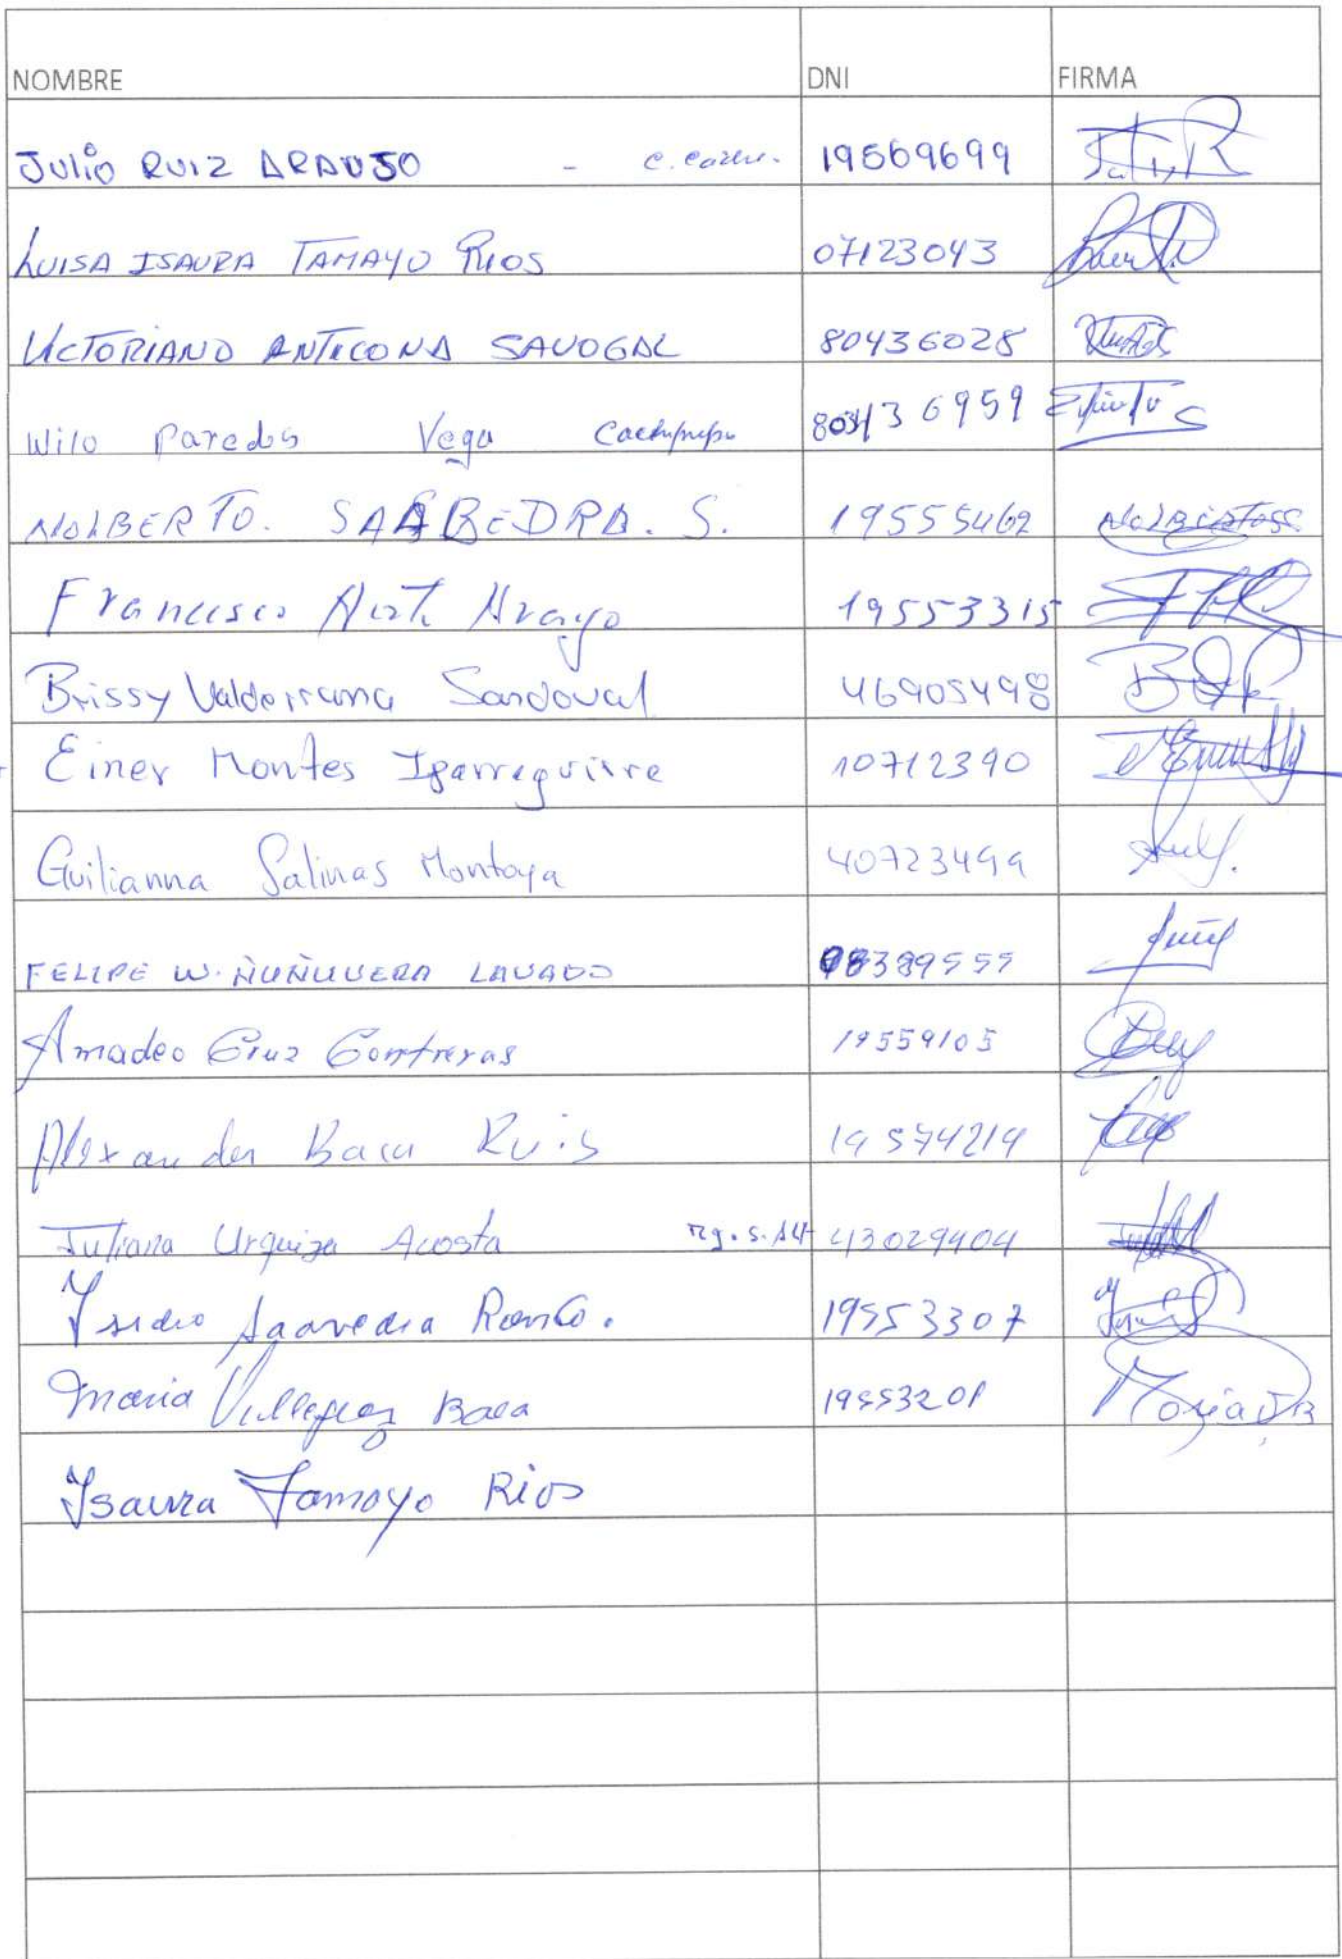 NOMBRE DNI FIRMA
Julio RUIZ ARAUJO - 19569699
LUISA ISAURA TAMAYO RIOS 07123043
VICTORIANO ANTICONA SAVOGAL 80436028
Wilo Paredes Vega 80436959
NOLBERTO. SAABEDRA. S. 19555462
Francisco 19553315
Brissy Valderrama Sandoval 46905498
Einer Montes Igarreguirre 10712390
Guilianna Salinas Montoya 40723499
FELIPE W. ÑUÑUVERA LAVADO 08389555
Amadeo Cruz Contreras 19559105
Alexander Baca Ruis 19574214
Juliana Urquiza Acosta 43029404
Ysidro Saavedra 19553307
Maria Villegas Baca 19553201
Isaura Tamayo Rios